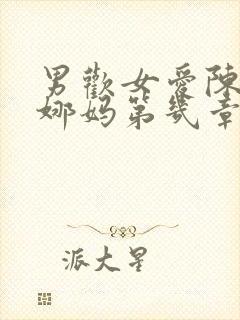 男歡女愛陳
娜媽第幾章
派大星